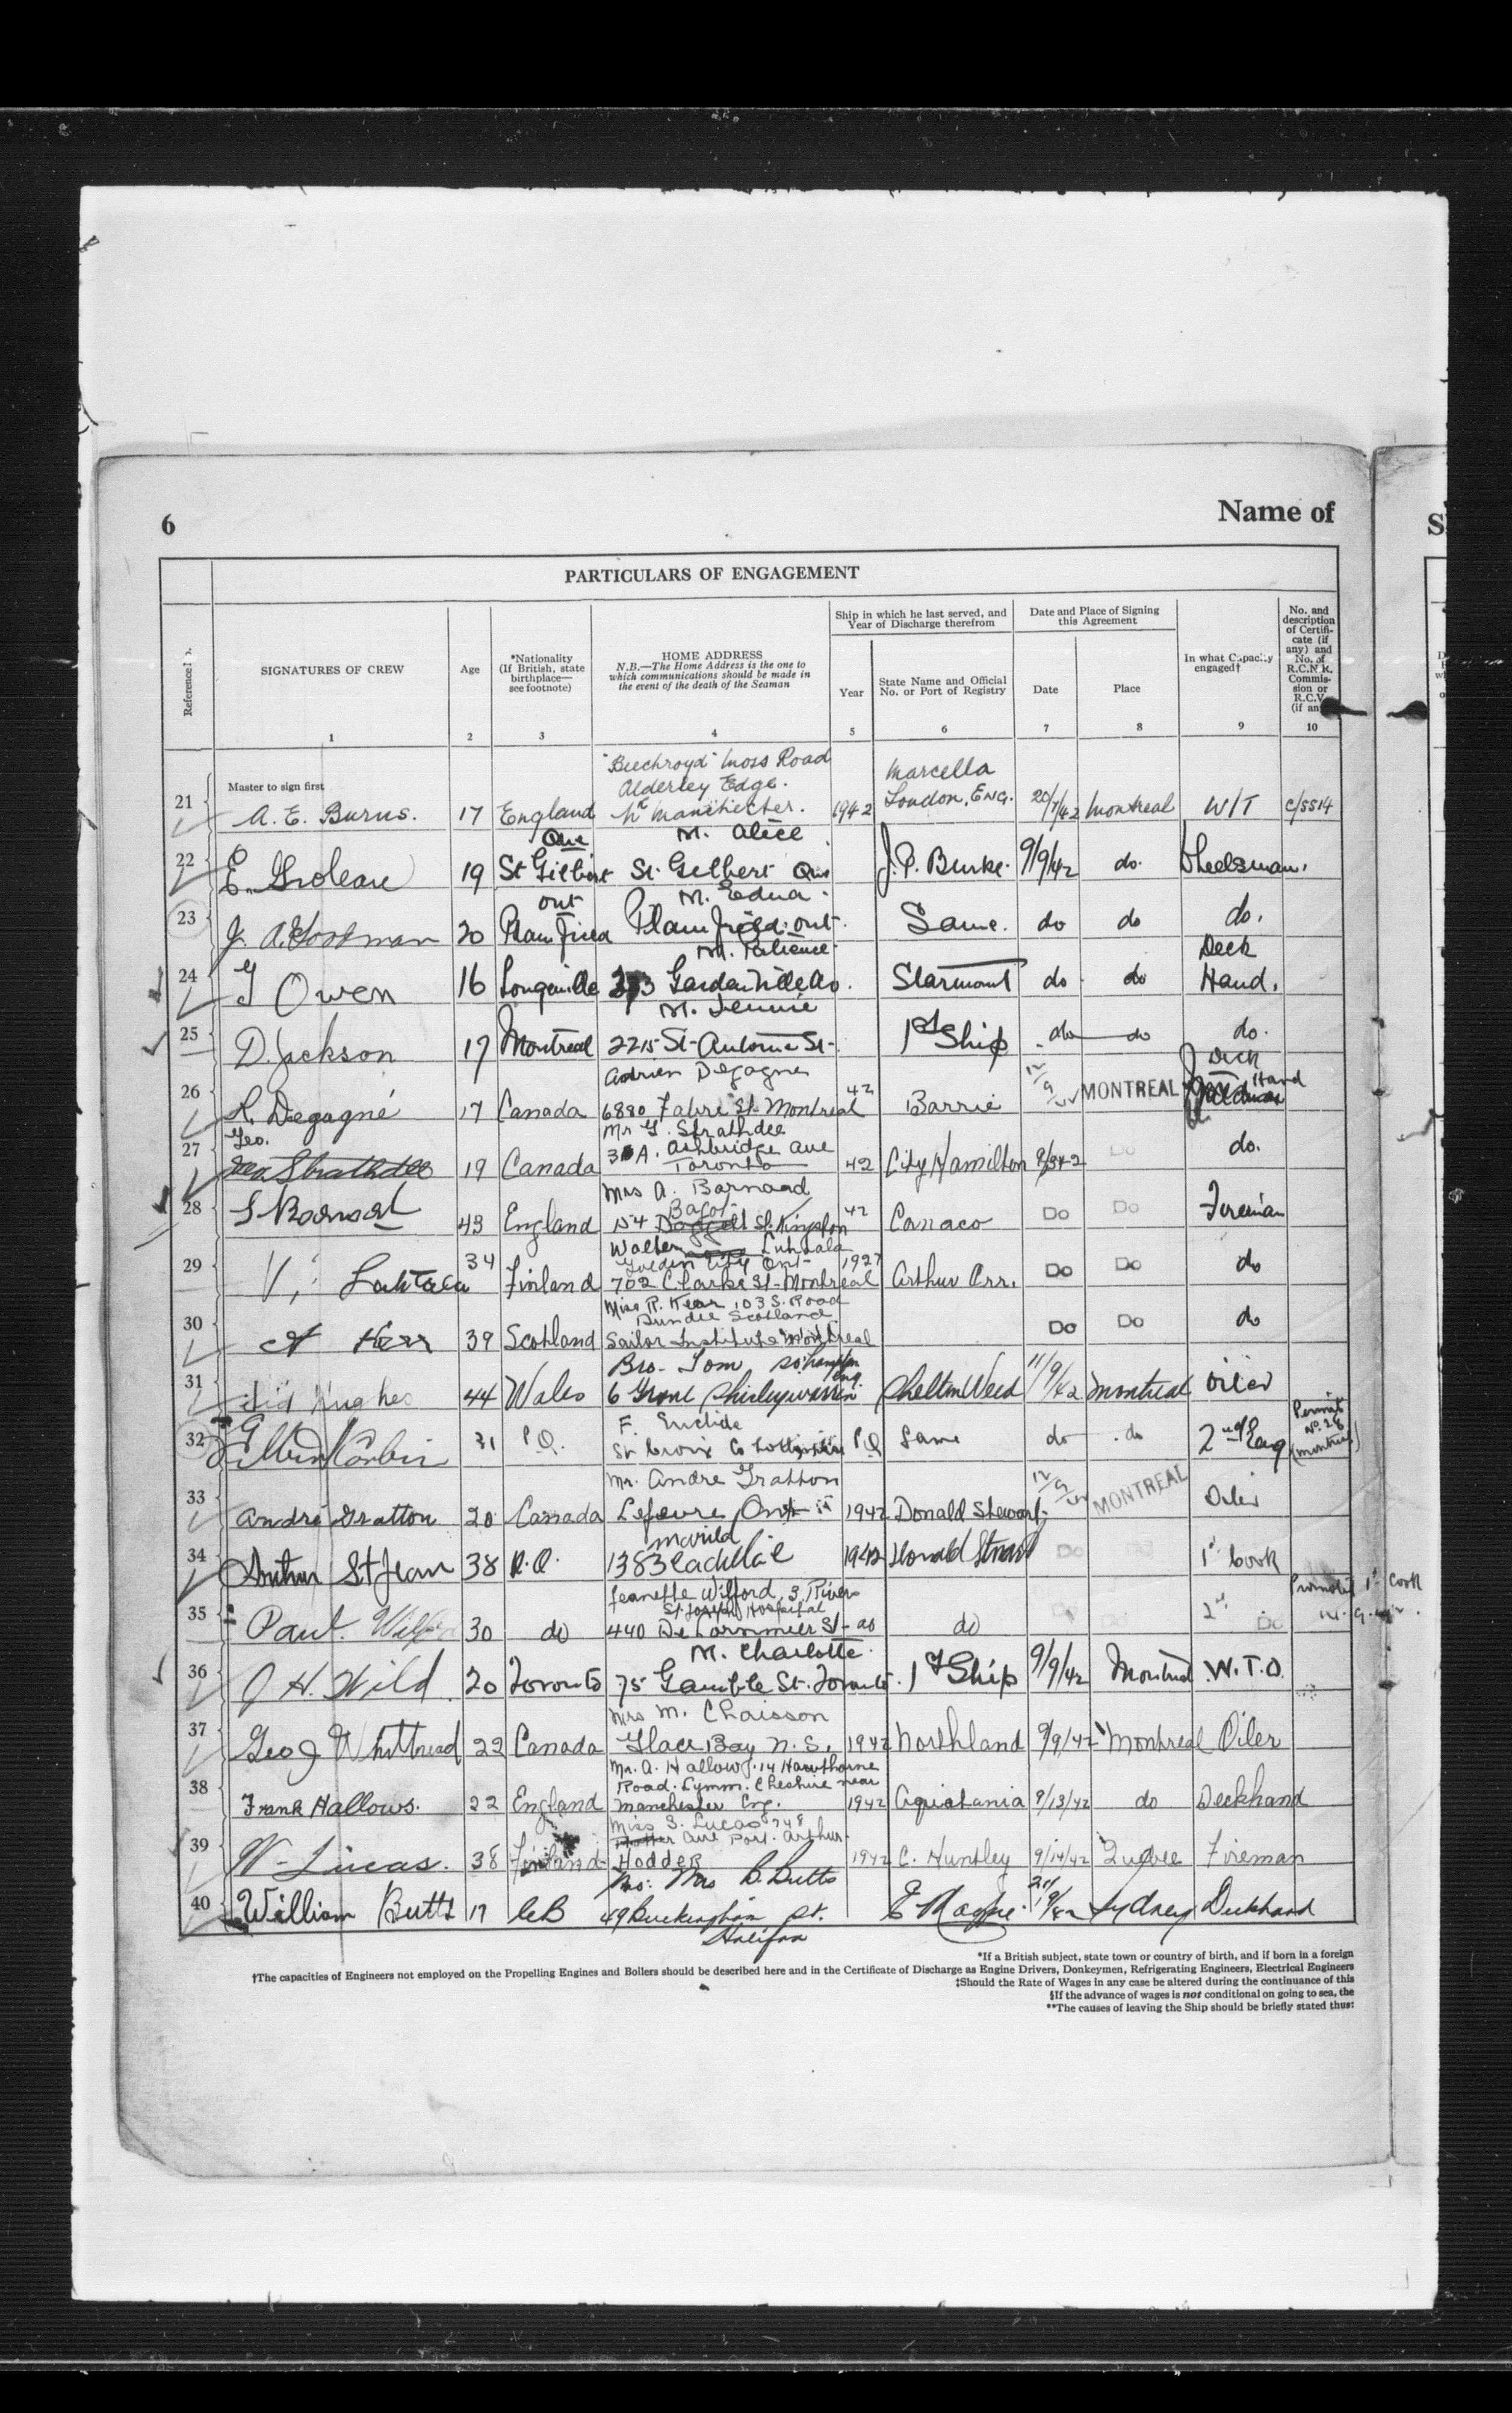 6
Name of
PARTICULARS OF ENGAGEMENT
Reference
SIGNATURES OF CREW
1
Age
2
*Nationality
(If British, state
birthplace—
see footnote)
3
HOME ADDRESS
N.B.—The Home Address is the one to
which communications should be made in
the event of the death of the Seaman
4
Ship in which he last served, and
Year of Discharge therefrom
Year
5
State Name and Official
No. or Port of Registry
6
Date and Place of Signing
this Agreement
Date
7
Place
8
In what Capacity
engaged†
9
No. and
description
of Certifi-
cate (if
any) and
No. of
R.C.N.R.
Commis-
sion or
R.C.V.
(if an
10
Master to sign first
"Beechroyd" Moss Road
Alderley Edge. Marcella
21 A. E. Burns. 17 England Nr Manchester. 1942 London, ENG. Montreal W/T C/5514
Que M. Alice
22 E. Groleau 19 St Gilbert St. Gilbert Que J.P. Burke. 9/9/42 do. Wheelsman.
Ont M. Edna
23 J. A. 20 Plainfield Plainfield Ont. Same. do do do.
M. Patience Deck
24 G Owen 16 Longueuille Gardenville Av. Starmount do do Hand.
M. Jennie
25 D. Jackson 17 Montreal 2215 St- Antoine St- 1st Ship do do do.
Adrien Degagne Deck
26 R. Degagné 17 Canada 6880 Fabre St- Montreal 42 Barrie 12/9/42 MONTREAL Hand
Geo. Mr G. Strathdee
27 Geo Strathdee 19 Canada A. Ashbridge Ave 42 City Hamilton Do do.
Toronto
Mrs A. Barnard
Bagot
28 43 England 154 St. Kingston 42 Canaco Do Do Fireman
Walter Luhtala
Golden City Ont-
29 V. 34 Finland 702 Clarke St- Montreal 1927 Arthur Orr. Do Do do
Miss R. Kerr 103 S. Road
Dundee Scotland
30 A Kerr 39 Scotland Sailor Institute Montreal Do Do do
Bro- Tom So'hampton Eng.
31 Sid Hughes 44 Wales 6 Grove Shirley Warren 11/9/42 Montreal Oiler
F. Euclide Permit
No. 28
32 31 P.Q. St Croix Co P Q Same do do 2nd Eng (Montreal)
Mr. Andre Gratton
33 André Gratton 20 Canada Lefevre Ont 1942 Donald Stewart 12/9/42 MONTREAL Oiler
34 Arthur St Jean 38 P.Q. 1383 Cadillac 1942 Donald Stewart Do Do 1st Cook
Jeanette Wilford, 3 Rivers
St Joseph Hospital
35 Paul 30 do 440 St- do do Do Do 2nd Do Promoted 1st Cook
M. Charlotte
36 J H. Wild 20 Toronto 75 Gamble St. Toronto. 1st Ship 9/9/42 Montreal W.T.O.
Mrs M. Chaisson
37 Geo J Whittnead 22 Canada Glace Bay N.S. 1942 Northland 9/9/42 Montreal Oiler
Mr. A. Hallows. 14 Hawthorne
Road. Lymm. Cheshire near
38 Frank Hallows. 22 England Manchester Eng. 1942 Aquitania 9/13/42 do Deckhand
Miss S. Lucas 748
Ave Port. Arthur.
39 W- Lucas. 38 Finland Hodder 1942 C. Huntley 9/14/42 Fireman
Mrs B. Butts
40 William Butts 17 C B 49 Buckingham St. Sydney Deckhand
Halifax
*If a British subject, state town or country of birth, and if born in a foreign
†The capacities of Engineers not employed on the Propelling Engines and Boilers should be described here and in the Certificate of Discharge as Engine Drivers, Donkeymen, Refrigerating Engineers, Electrical Engineers
‡Should the Rate of Wages in any case be altered during the continuance of this
§If the advance of wages is not conditional on going to sea, the
**The causes of leaving the Ship should be briefly stated thus: